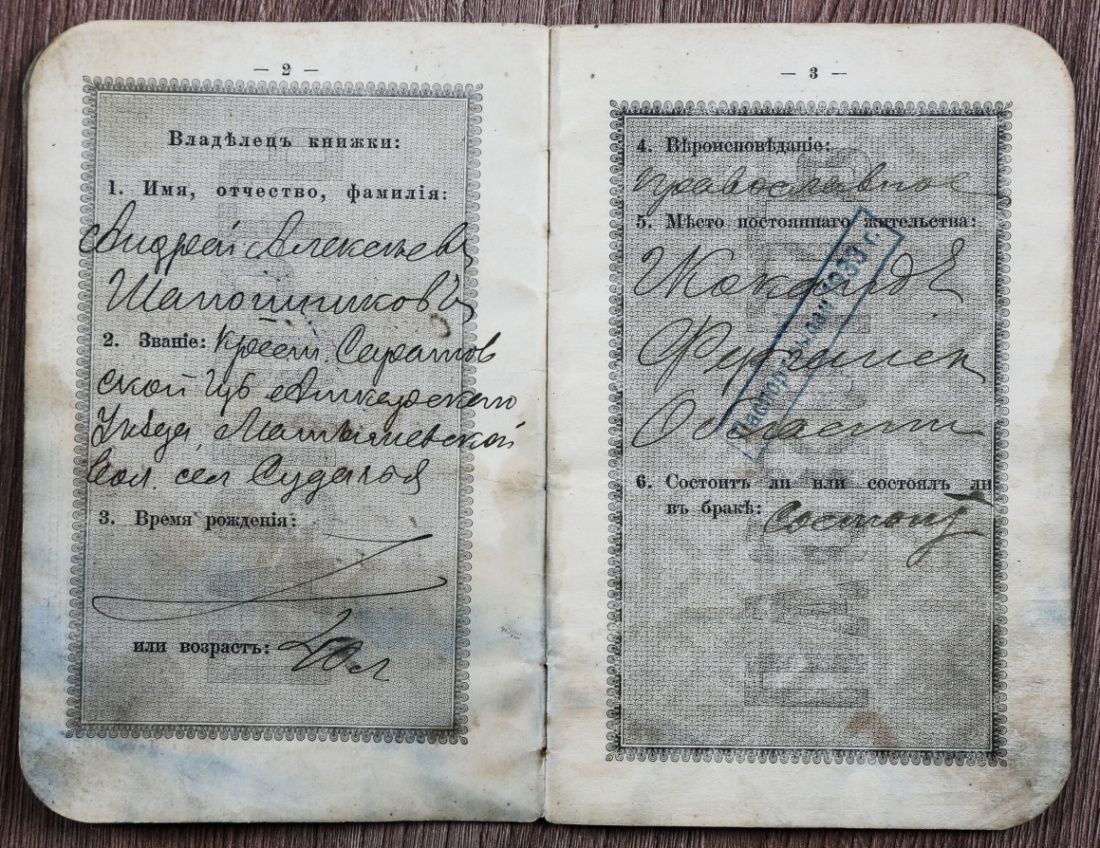 — 2 —
Владѣлецъ книжки:
1. Имя, отчество, фамилія:
Андрей Алексѣев
Шапошниковъ
2. Званіе: Крест. Саратов
ской губ Аткарскаго
Уѣзда,
Вол. сел
3. Время рожденія:
или возрастъ: 40 л
— 3 —
4. Вѣроисповѣданіе:
православное
5. Мѣсто постояннаго жительства:
Кокандѣ
Ферганск
Области
Паспорт выдан 193 г.
6. Состоитъ ли или состоялъ ли
въ бракѣ: состоитъ